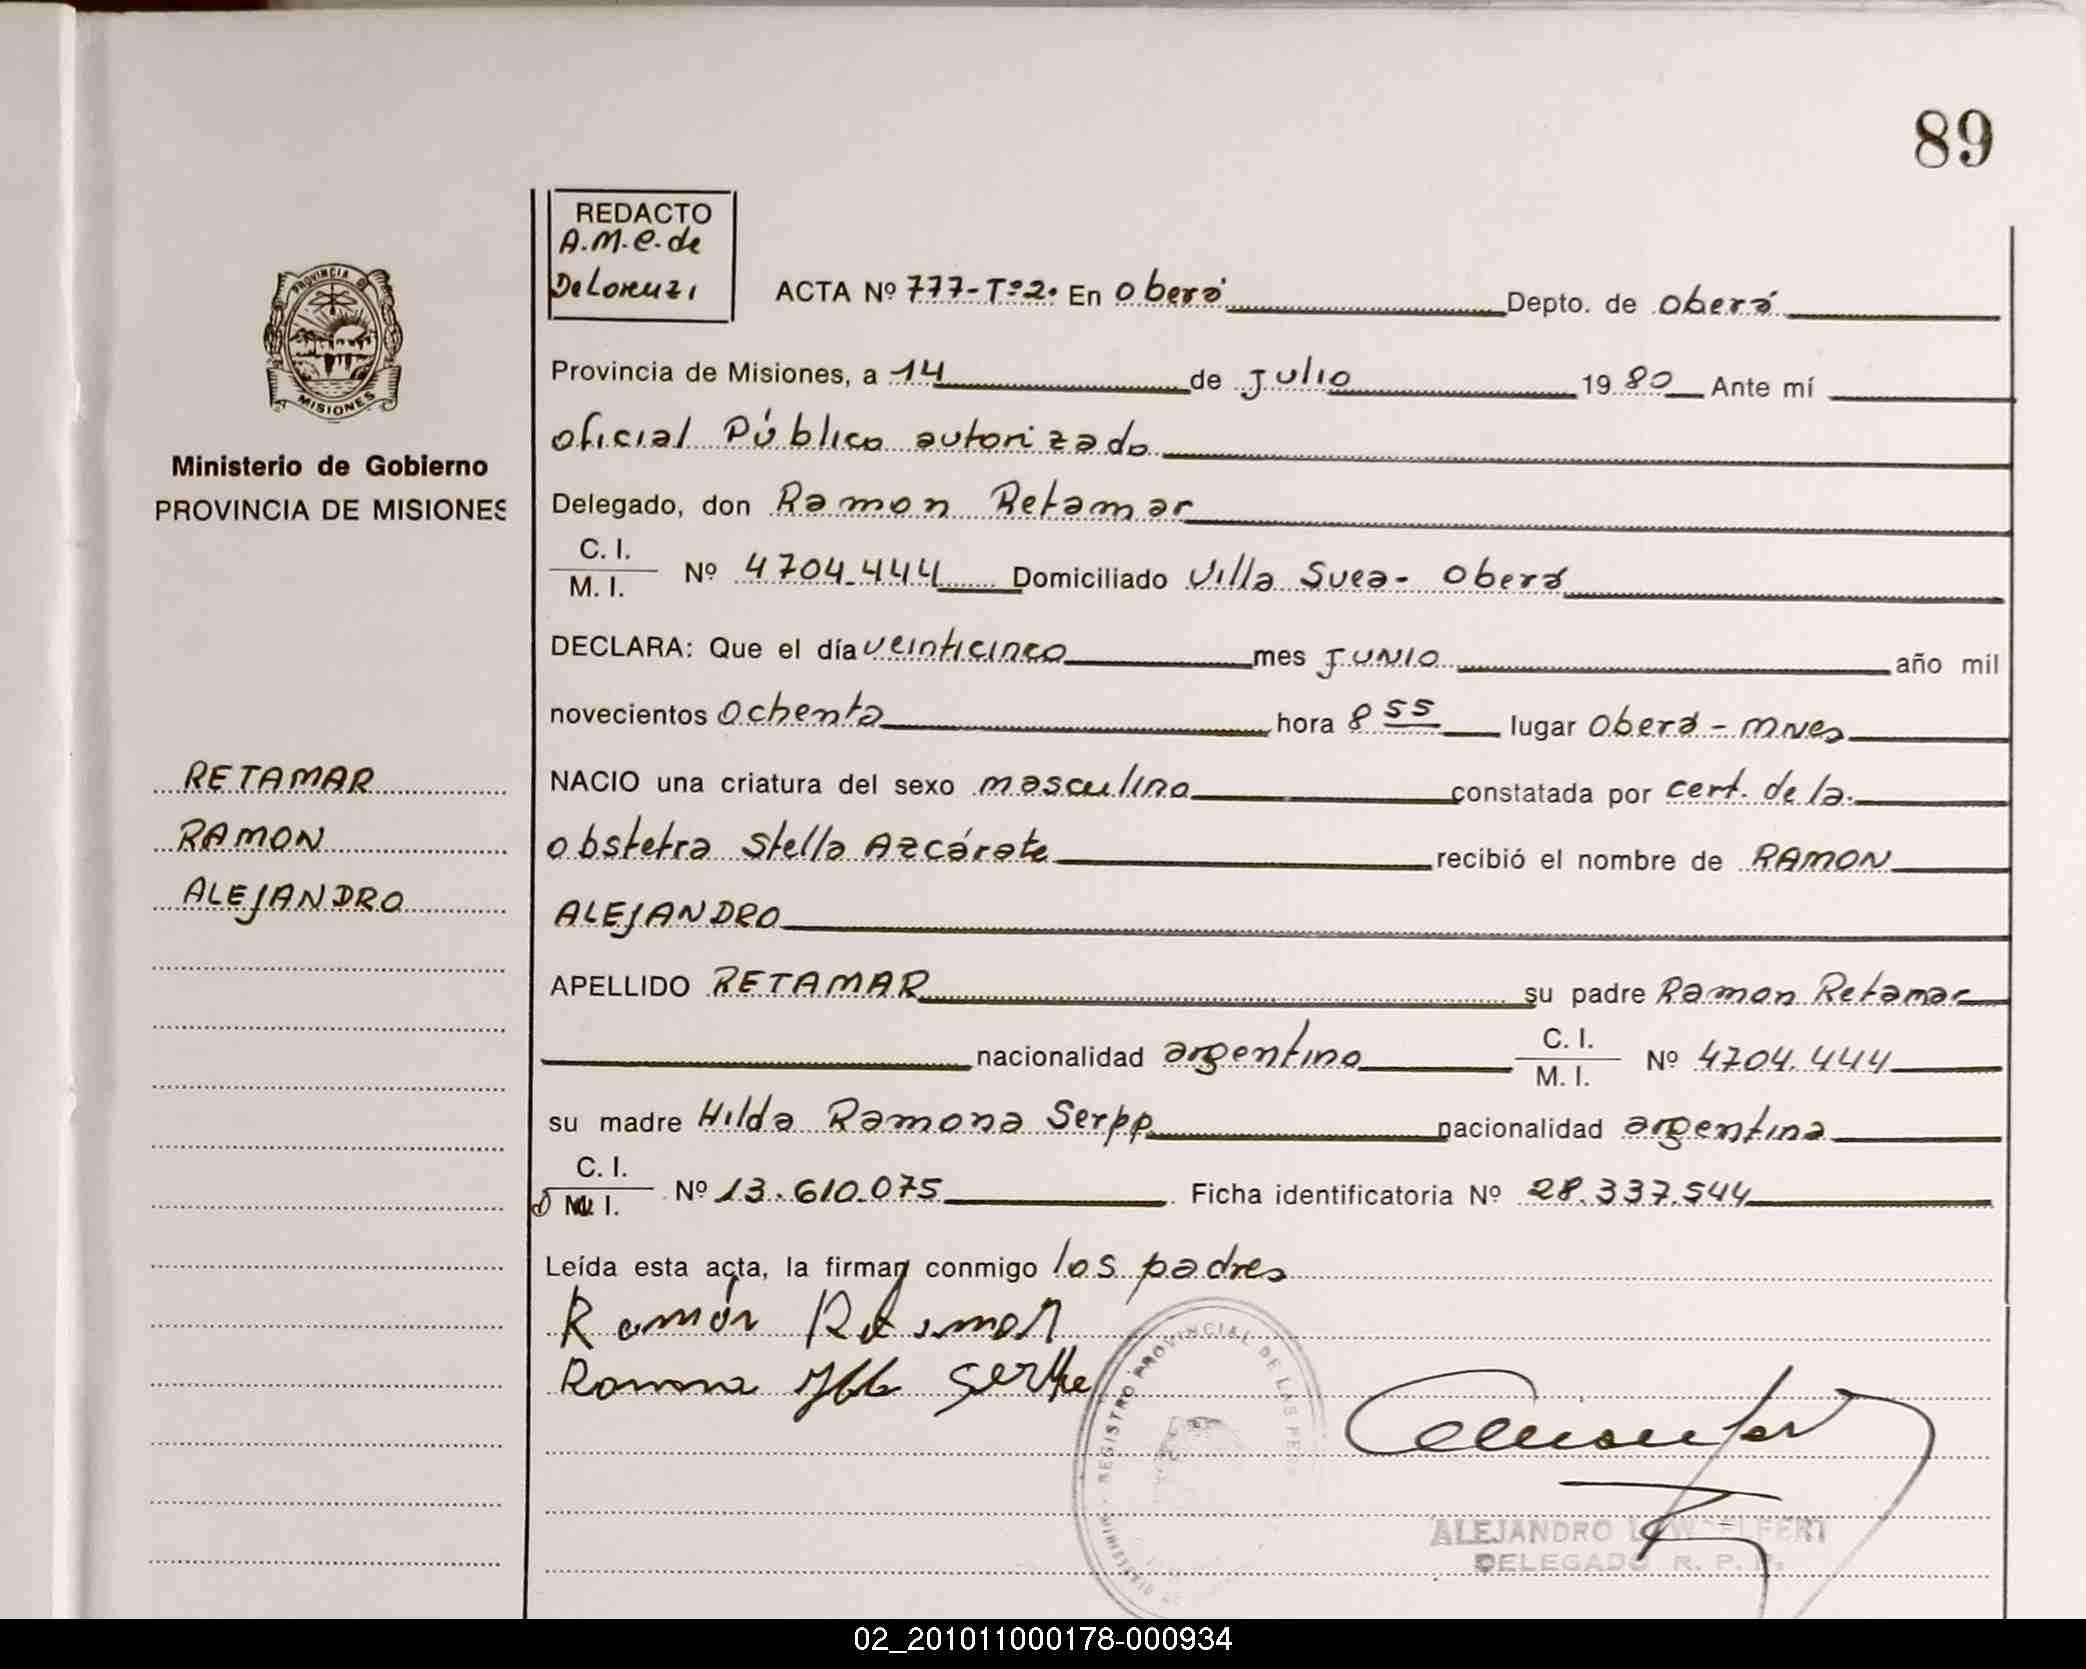 89
REDACTO
A.M.C. de
DeLorenzi
ACTA Nº 777-Tº2. En Oberá Depto. de Oberá
Provincia de Misiones, a 14 de Julio 1980 Ante mí
oficial Público autorizado
Delegado, don Ramon Retamar
C. I.
M. I. Nº 4704.444 Domiciliado Villa Svea- Oberá
DECLARA: Que el día veinticinco mes JUNIO año mil
novecientos Ochenta hora 8 55 lugar Oberá - Mnes
NACIO una criatura del sexo masculino constatada por cert. de la
obstetra Stella Azcárate recibió el nombre de RAMON
ALEJANDRO
APELLIDO RETAMAR su padre Ramon Retamar
nacionalidad argentino C. I.
M. I. Nº 4704.444
su madre Hilda Ramona Serpp nacionalidad argentina
C. I.
M. I. Nº 13.610.075 Ficha identificatoria Nº 28.337.544
Leída esta acta, la firman conmigo los padres
Ramón
Ramona
PROVINCIA DE MISIONES
Ministerio de Gobierno
PROVINCIA DE MISIONES
RETAMAR
RAMON
ALEJANDRO
REGISTRO PROVINCIAL DE LAS
ALEJANDRO
DELEGADO R. P. P.
02_201011000178-000934